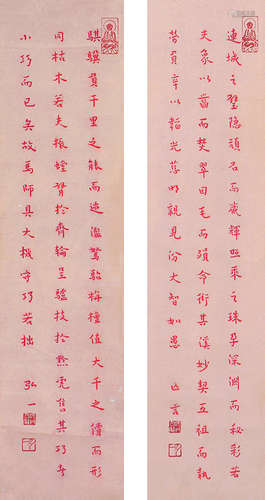 連城之璧隱頑石而藏輝照乘之珠孕深淵而秘彩若
夫象以齒而焚翠因毛而殞今衒其溪妙契五祖而執
勞負舂以韜光慈明親見汾大智如愚
騏驥負千里之能而迹濫駑駘栴檀值大千之價而形
同枯木若夫振螳臂於齊輪呈驢技於黔虎售其巧者
小巧而已矣故馬師具大機守巧若拙 弘一